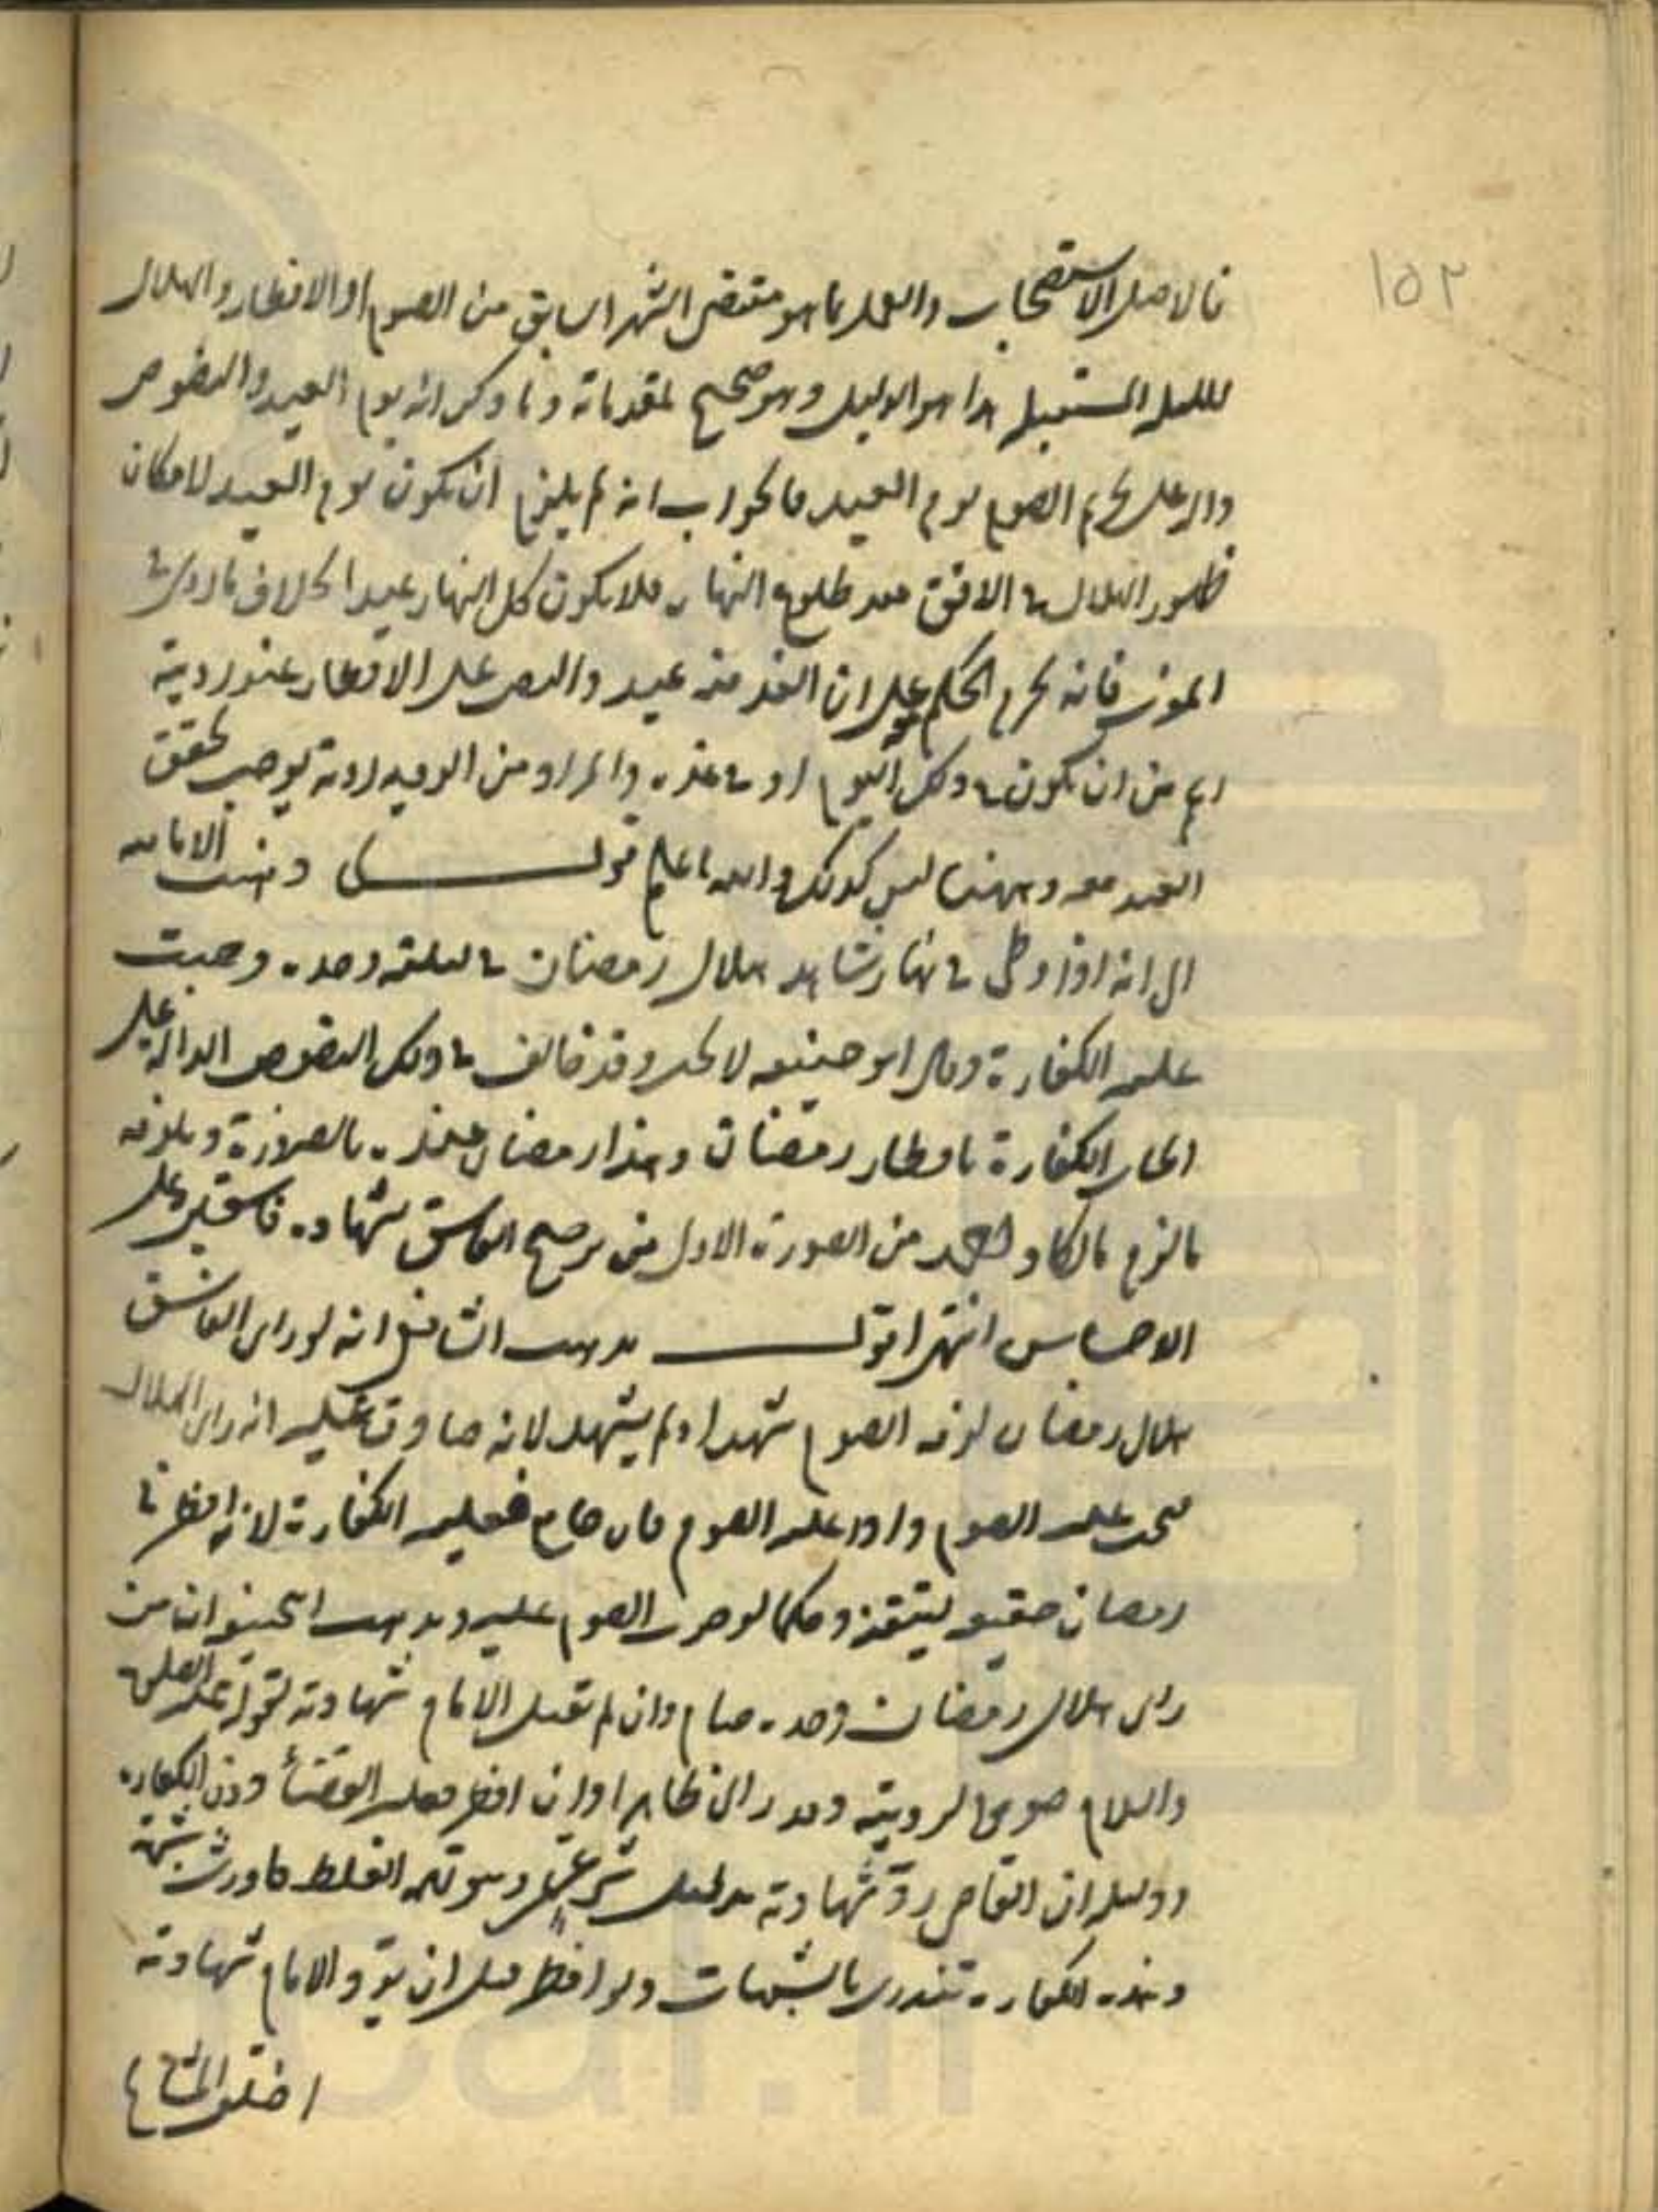 ١٥٢
فالاصل الاستصحاب والعمل بما هو مقتضى الشهر السابق من الصوم او الافطار والهلال
لليلة المستقبلة هذا هو الدليل وهو صحيح لمقدماته وما ذكر انه يوم العيد والنصوص
دالة على تحريم الصوم يوم العيد فالجواب انه لم يلزم ان يكون يوم العيد لامكان
ظهور الهلال في الافق بعد طلوع النهار فلا يكون كل النهار عيدا بخلاف ما روى في
فانه الحكم على ان الغد منه عيد والنص على الافطار عند رؤيته
اعم من ان يكون في ذلك اليوم او في غده والمراد من الرؤية رؤية يوجب تحقق
العيد معه وههنا ليس كذلك والله اعلم قوله وذهبت الامامية
الى انه اذا وطى في نهار شاهد هلال رمضان في ليلته وحده وجبت
عليه الكفارة وقال ابو حنيفه لا يجب وقد خالف في ذلك النصوص الدالة على
ايجاب الكفارة بافطار رمضان وهذا رمضان عنده بالضرورة ويلزمه
من الصورة الاولى من ترجيح الفاسق شهادة فاسقين على
الاحساس انتهى اقول مذهب الشافعي انه لو راى الفاسق
هلال رمضان لزمه الصوم شهد او لم يشهد لانه صادق عليه انه راى الهلال
فيجب عليه الصوم واذا وجب عليه الصوم فان جامع فعليه الكفارة لانه افطر في
رمضان حقيقه ليتيقنه وحكما لوجوب الصوم عليه ومذهب ابي حنيفة ان من
راى هلال رمضان وحده صام وان لم تقبل الامام شهادته لقوله عليه الصلوة
والسلام صوموا لرويته وقد راى ظاهرا وان افطر فعليه القضاء دون الكفارة
ودليله ان القاضى رد شهادته بدليل شرعى وهو تهمة الغلط فاورث شبهة
وهذه الكفارة تندرى بالشبهات ولو افطر قبل ان يرد الامام شهادته
اختلف المشايخ